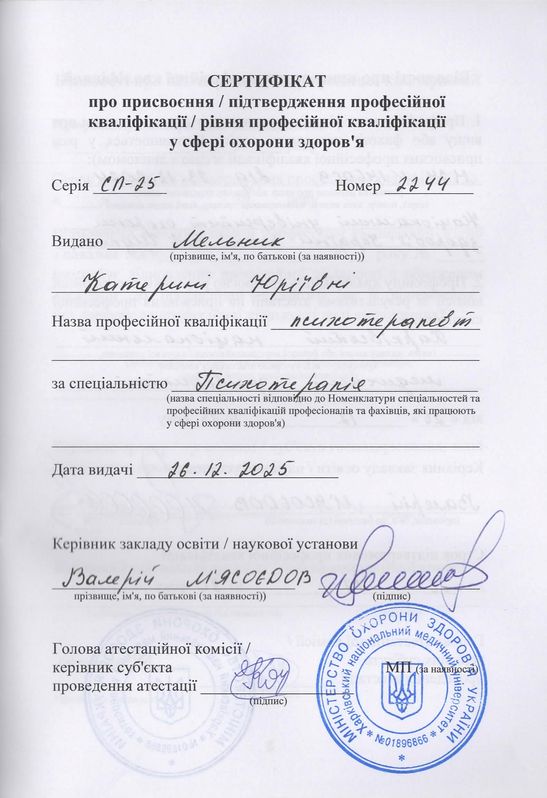 СЕРТИФІКАТ
про присвоєння / підтвердження професійної
кваліфікації / рівня професійної кваліфікації
у сфері охорони здоров'я
Серія СП-25 Номер 2244
Видано Мельник
(прізвище, ім'я, по батькові (за наявності))
Катерині Юріївні
Назва професійної кваліфікації психотерапевт
за спеціальністю Психотерапія
(назва спеціальності відповідно до Номенклатури спеціальностей та
професійних кваліфікацій професіоналів та фахівців, які працюють
у сфері охорони здоров'я)
Дата видачі 26.12.2025
Керівник закладу освіти / наукової установи
Валерій М'ЯСОЄДОВ
прізвище, ім'я, по батькові (за наявності))
(підпис)
Голова атестаційної комісії /
керівник суб'єкта
проведення атестації
(підпис)
МП (за наявності)
МІНІСТЕРСТВО ОХОРОНИ ЗДОРОВ'Я УКРАЇНИ
Харківський національний медичний університет
№01896866